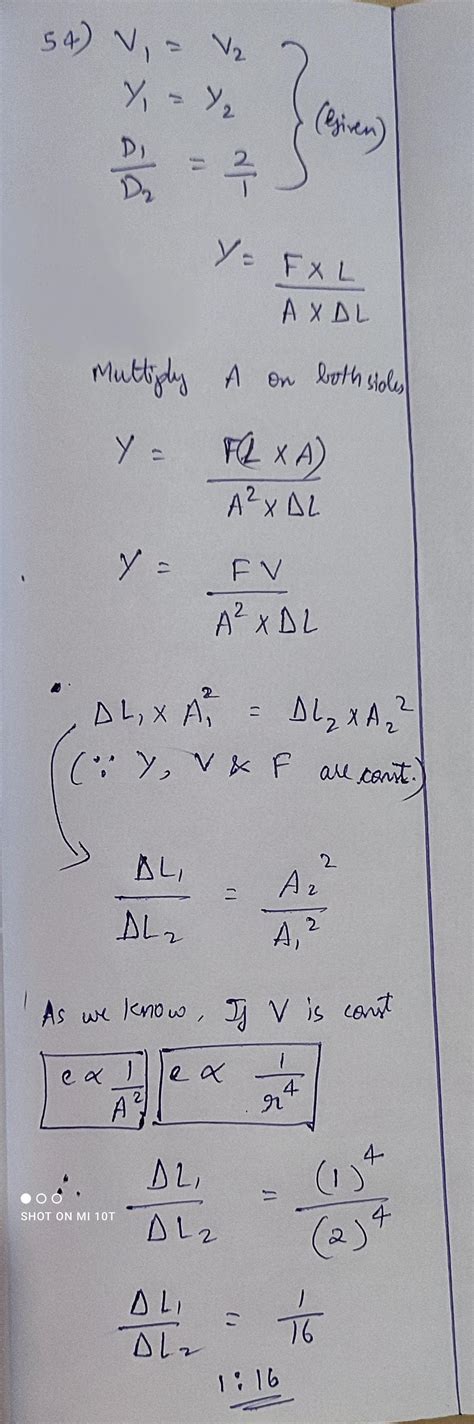 54) V₁ = V₂
Y₁ = Y₂
D₁/D₂ = 2/1
(Given)
Y = F × L / A × ΔL
Multiply A on both sides
Y = F(L × A) / A² × ΔL
Y = FV / A² × ΔL
ΔL₁ × A₁² = ΔL₂ × A₂²
(∵ Y, V & F are const.)
ΔL₁/ΔL₂ = A₂²/A₁²
As we know, If V is const
e ∝ 1/A² e ∝ 1/r⁴
∴ ΔL₁/ΔL₂ = (1)⁴/(2)⁴
SHOT ON MI 10T
ΔL₁/ΔL₂ = 1/16
1:16